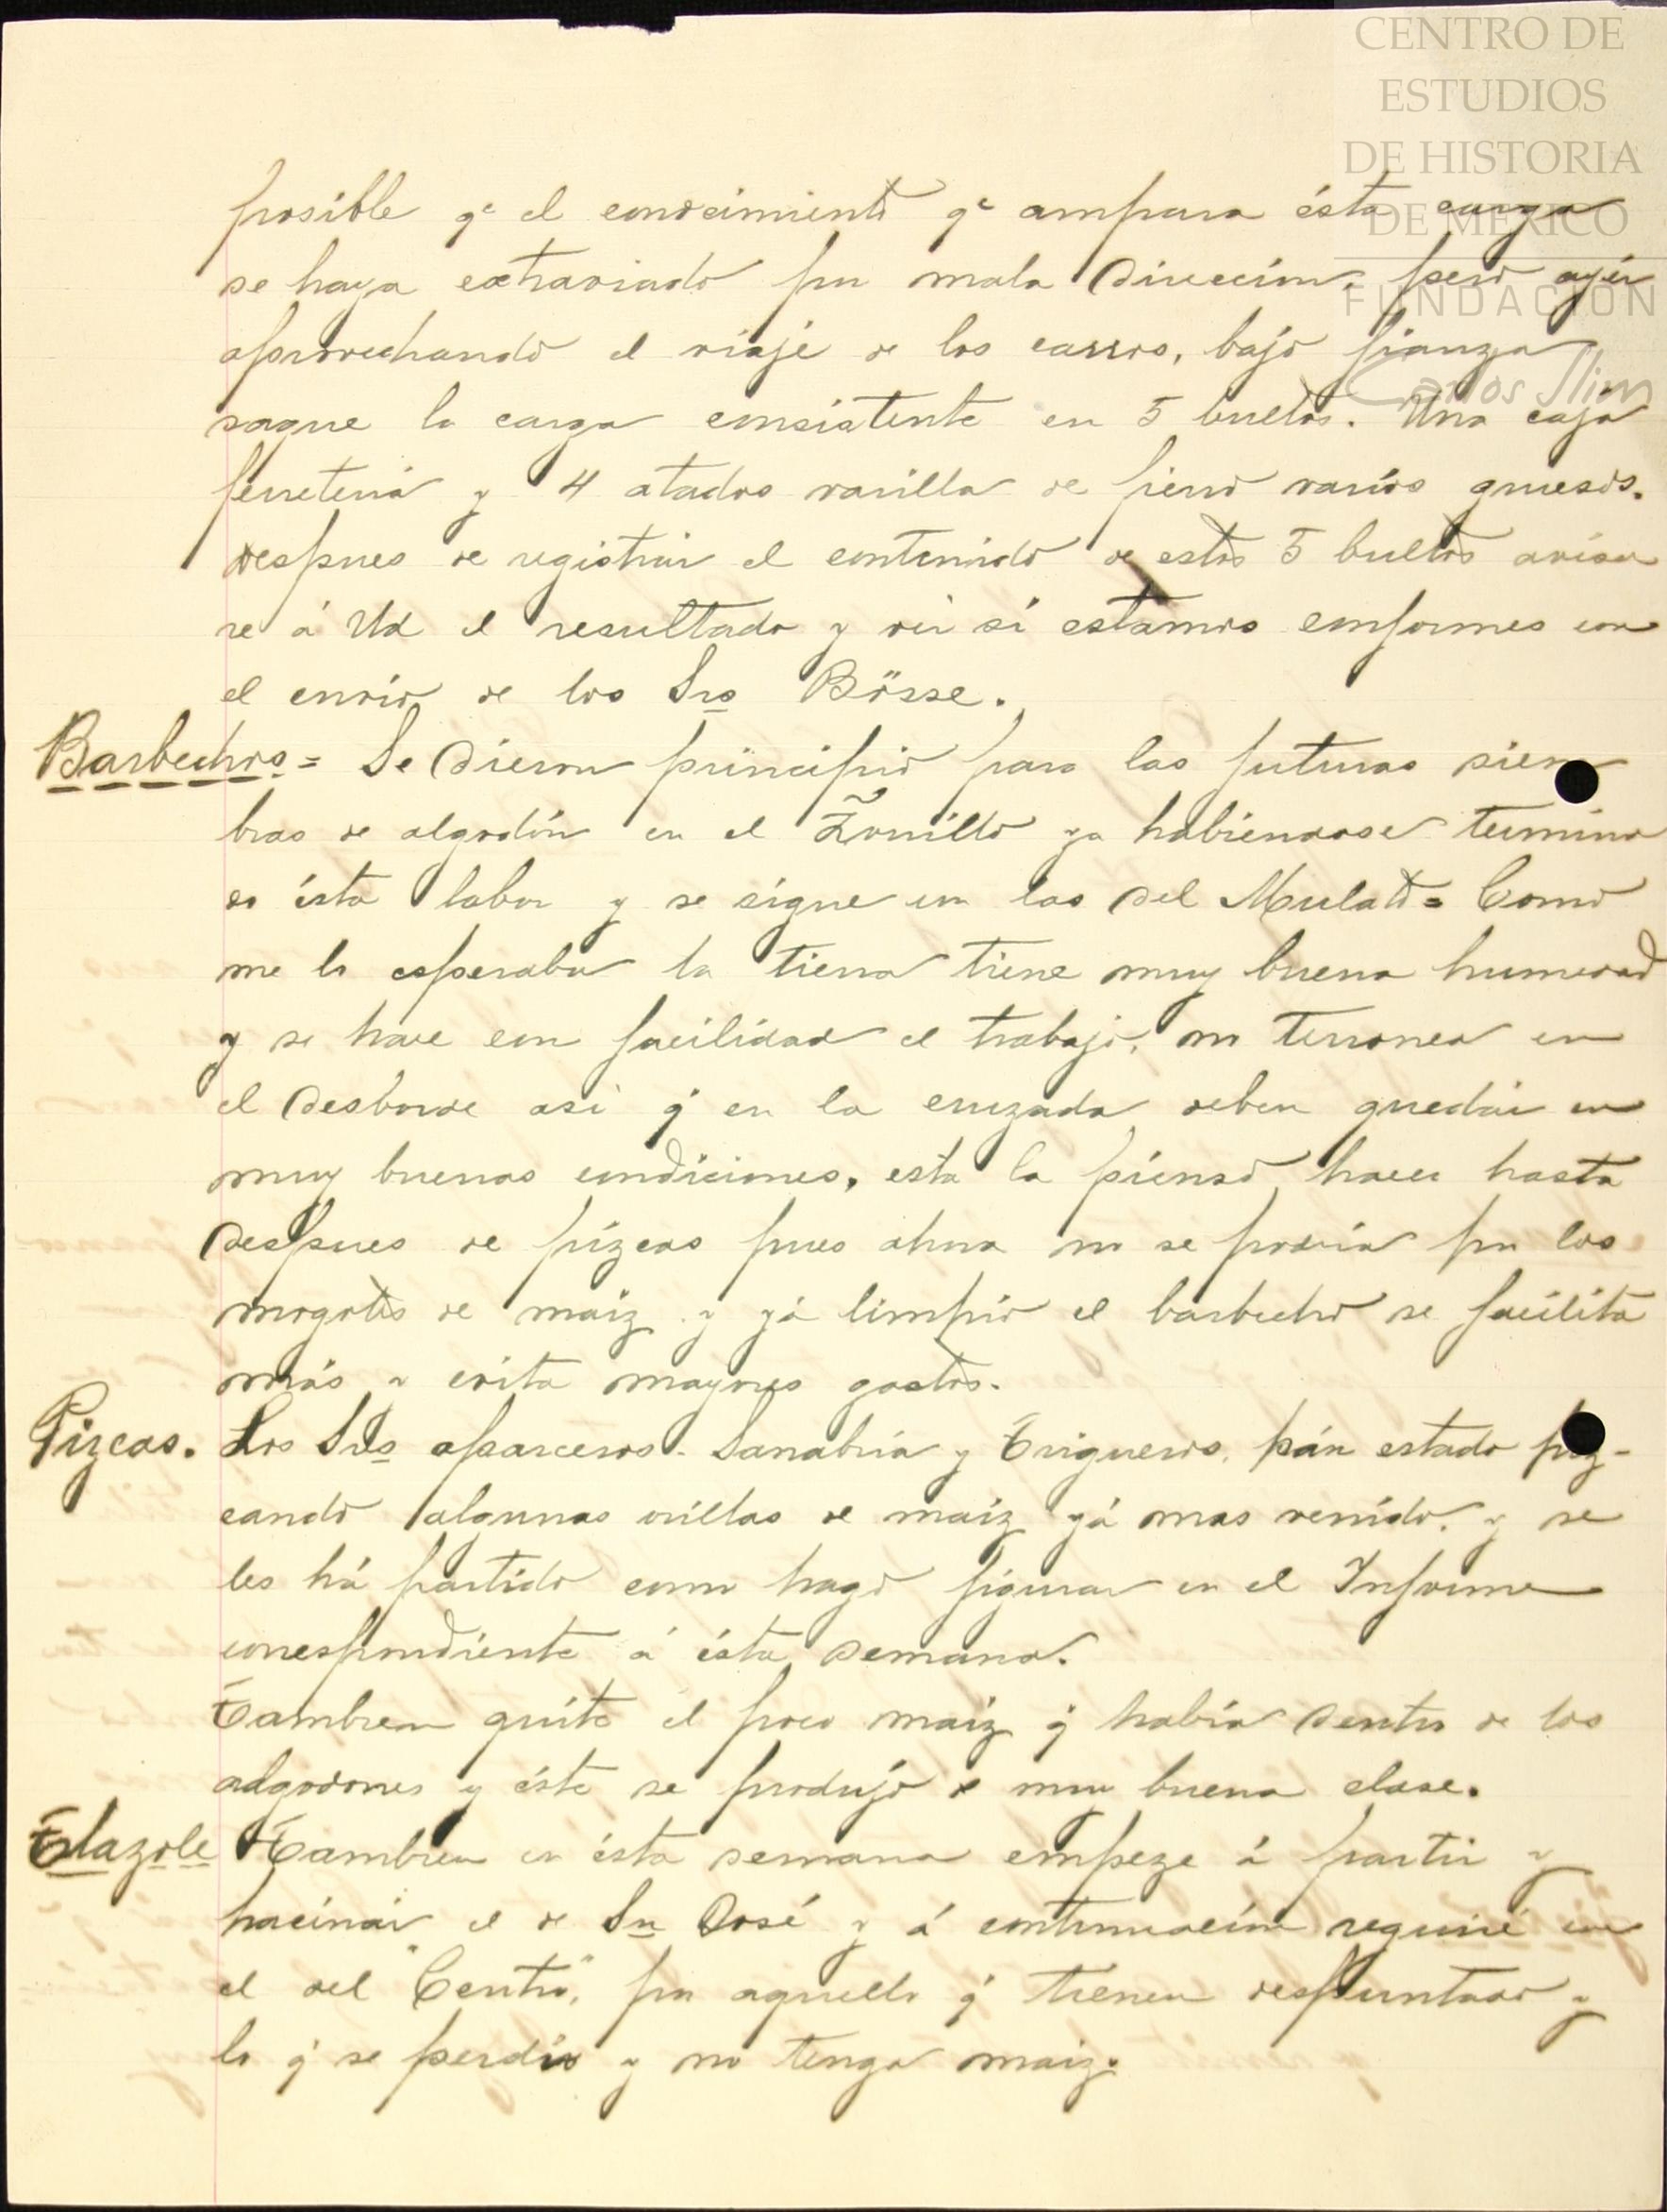 CENTRO DE
ESTUDIOS
DE HISTORIA
DE MÉXICO
FUNDACIÓN
Carlos Slim
posible qe el conocimiento qe ampara ésta carga
se haya extraviado por mala Dirección, pero ayér
aprovechando el viaje de los carros, bajo fianza
saque la carga consistente en 5 bueltos. Una caja
ferreteria y 4 atados varilla de fierro varios gruesos.
despues de registrar el contenido de estos 5 bultos avisa
re á Ud el resultado y vér sí estamos conformes con
el envio de los Srs Bösse.
Barbechos = Se Dieron principio para las futuras siem
bras de algodón en el Zorrillo ya habiendose termina
do ésta labor y se sigue en las del Mulato = Como
me lo esperaba la tierra tiene muy buena humedad
y se hace con facilidad el trabajo, no terronea en
el Desborde asi q en la cruzada deben quedár en
muy buenas condiciones, esta la pienso hacer hasta
despues de pizcas pues ahora no se podria por los
mogotes de maiz y yá limpio el barbecho se facilita
más y evita mayores gastos.
Pizcas. Los Srs aparceros Sanabria y Trigueros, hán estado piz-
cando algunas orillas de maiz yá mas venido, y se
les há partido como hago figurar en el Informe
correspondiente á ésta Semana.
Tambien quite el poco maiz q habia Dentro de los
algodones y éste se produjo muy buena clase.
Tlazole Tambien en ésta semana empeze á partir y
hacinár el de Sn José y á continuación seguiré con
el del "Centro", por aquello q tienen despuntado y
lo q se perdio y no tenga maiz.